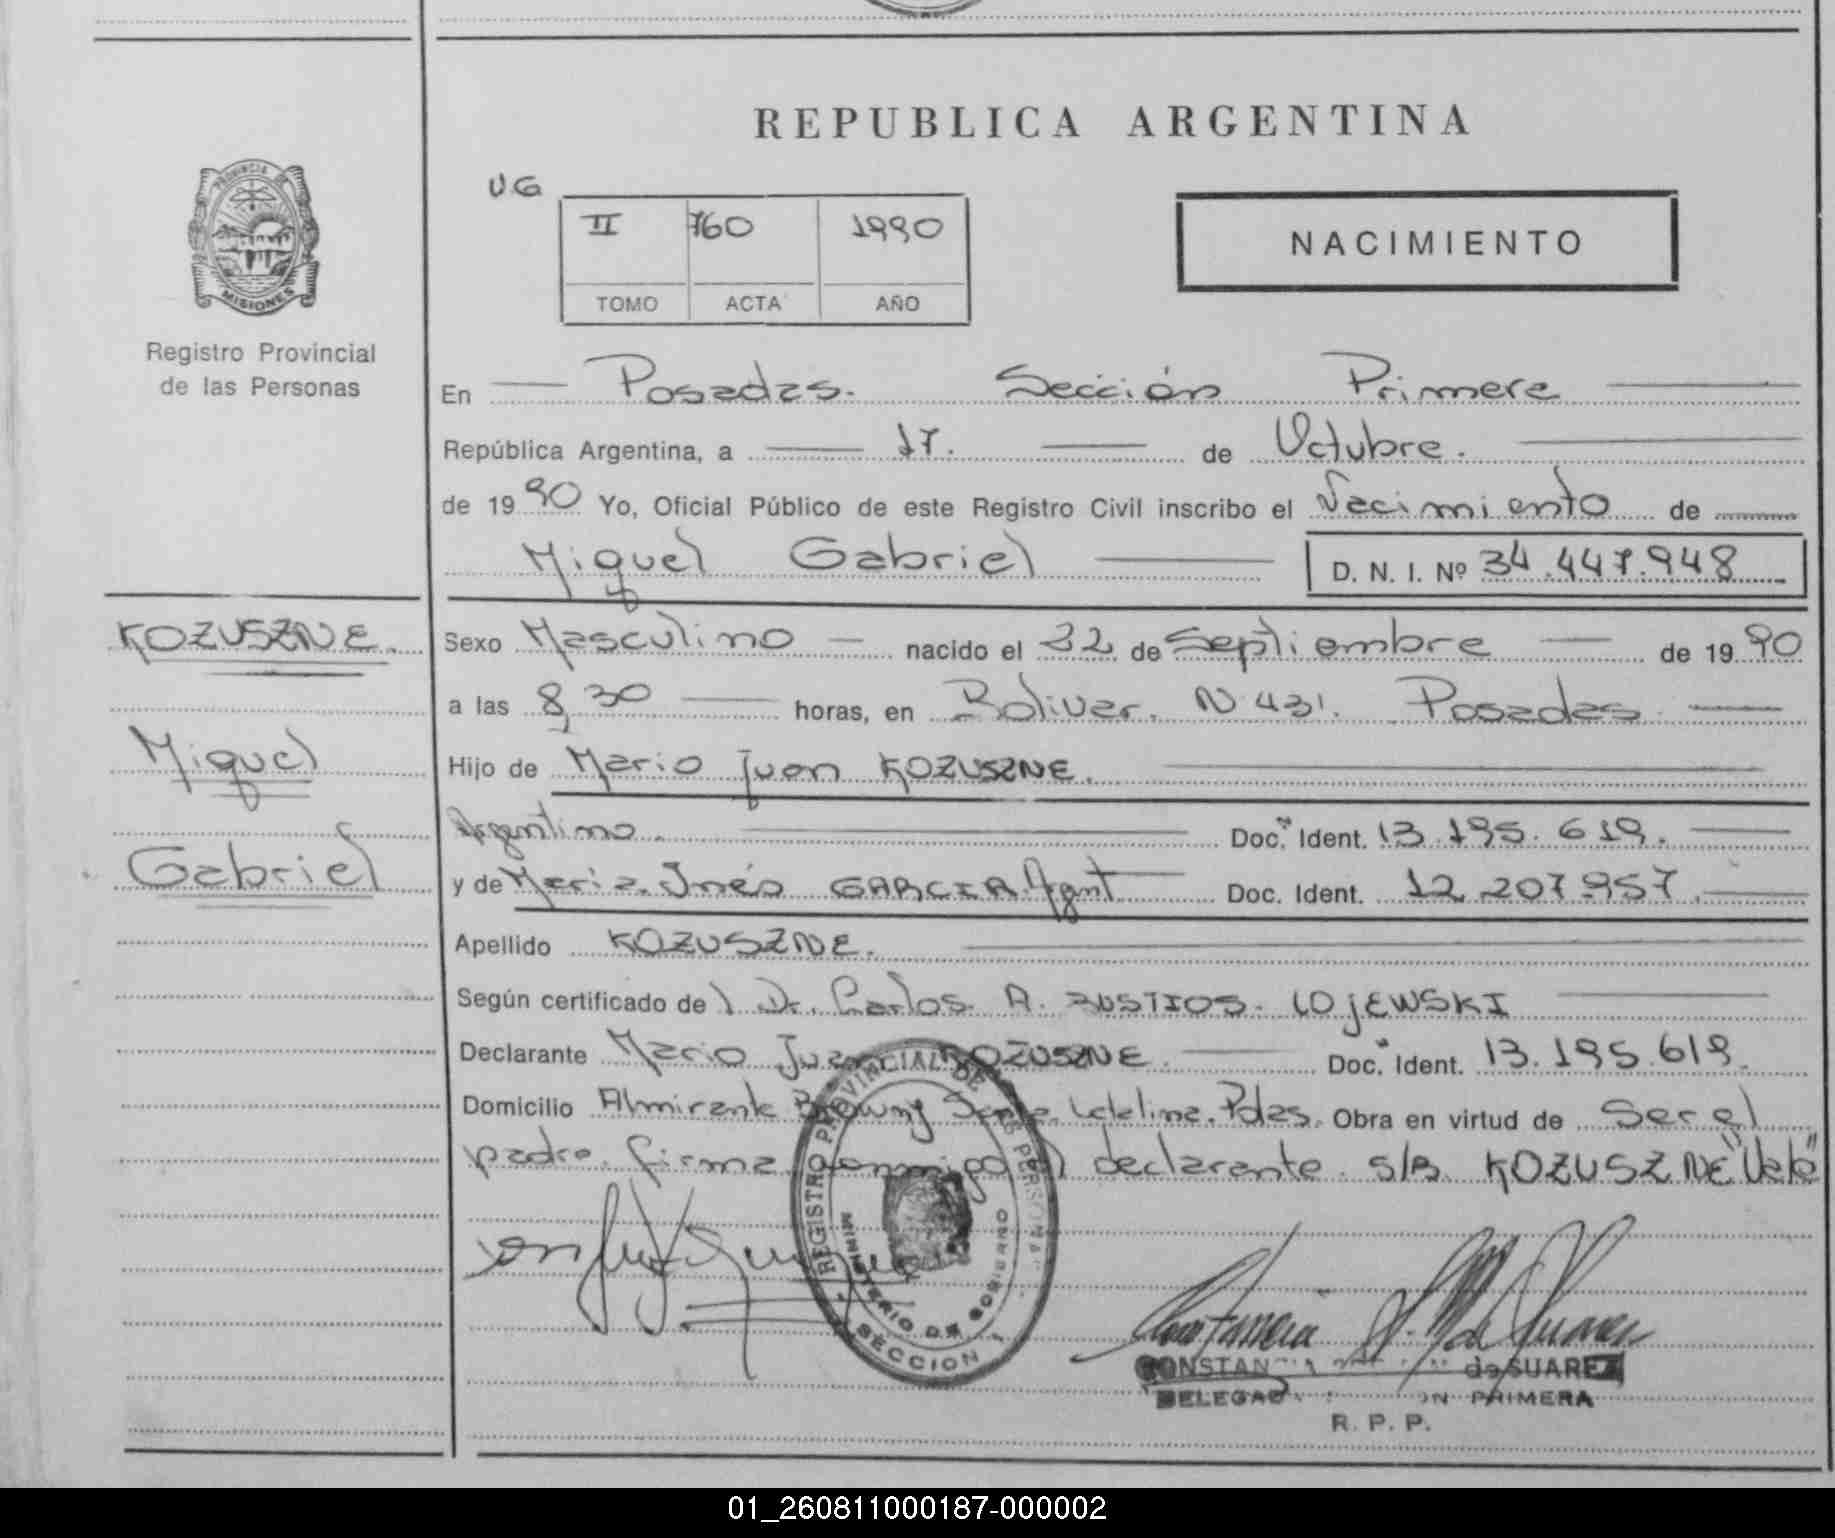 REPUBLICA ARGENTINA
PROVINCIA DE MISIONES
Registro Provincial
de las Personas
U.G
II 760 1990
TOMO ACTA AÑO
NACIMIENTO
En Posadas. Sección Primera
República Argentina, a 17. de Octubre.
de 1990 Yo, Oficial Público de este Registro Civil inscribo el Nacimiento de
Miguel Gabriel D. N. I. Nº 34.447.948
KOZUSZNE.
Miguel
Gabriel
Sexo Masculino nacido el 22 de Septiembre de 1990
a las 8,30 horas, en Bolivar. N 431. Posadas
Hijo de Mario Juan KOZUSZNE.
Argentino. Doc. Ident. 13.195.619.
y de Maria Inés GARCIA Agnt Doc. Ident. 12.207.957.
Apellido KOZUSZNE.
Según certificado del Dr. Carlos A. BUSTIOS. LOJEWSKI
Declarante Mario Juan KOZUSZNE. Doc. Ident. 13.195.619.
Domicilio Almirante Brown y Santa Catalina. Pdas. Obra en virtud de ser el
padre. firma conmigo el declarante. S/B KOZUSZNE "Vale"
REGISTRO PROVINCIAL DE LAS PERSONAS
MINISTERIO DE GOBIERNO
SECCION 1
CONSTANCIA de SUAREZ
PRIMERA
R. P. P.
01_260811000187-000002